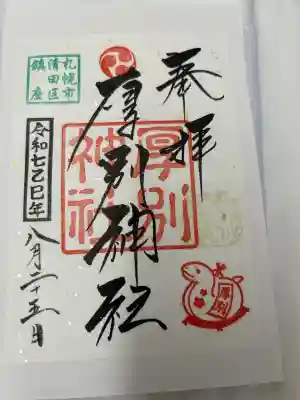 奉拝
厚別神社
厚別
神社
札幌市
清田区
鎮座
令和七乙巳年
八月二十五日
厚別